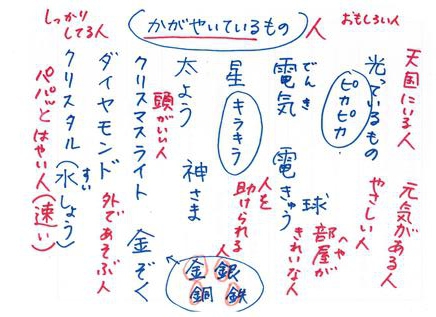 かがやいているもの 人
おもしろい人
しっかり
してる人
天国にいる人 元気がある人
光っているもの やさしい人
ピカピカ
でんき
電気 電きゅう 球
部屋が
へや
きれいな人
星 キラキラ
人を
助けられる
人
太よう 神さま
頭がいい人
クリスマスライト 金ぞく
金 銀
銅 鉄
ダイヤモンド 外であそぶ人
クリスタル(水しょう)
すい
パパッとはやい人(速い)